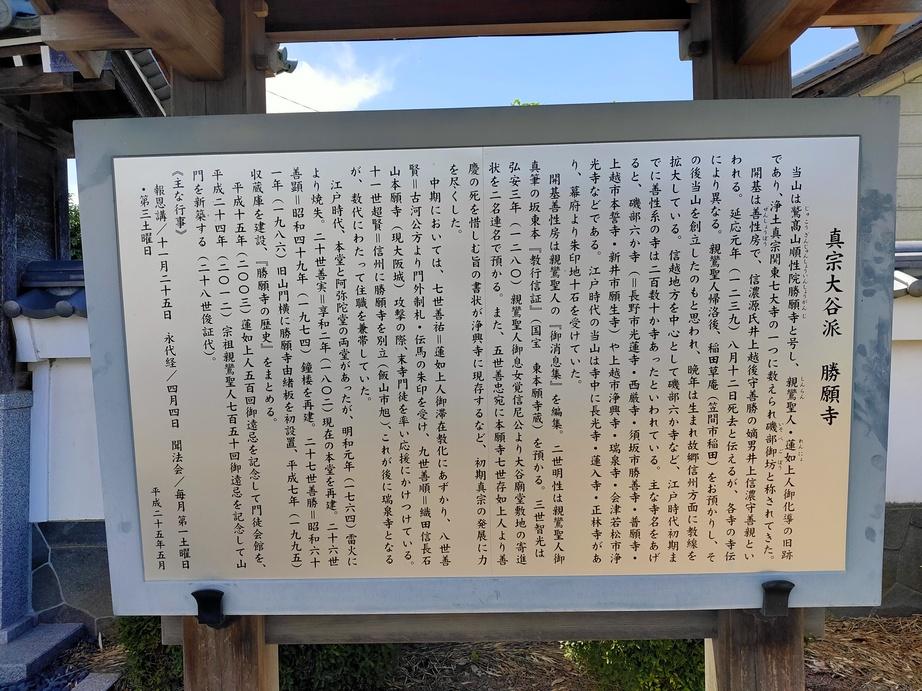 真宗大谷派　勝願寺
当山は鷲高山順性院勝願寺と号し、親鸞聖人・蓮如上人御化導の旧跡
であり、浄土真宗関東七大寺の一つに数えられ磯部御坊と称されてきた。
開基は善性房で、信濃源氏井上越後守善勝の嫡男井上信濃守善親とい
われる。延応元年（一二三九）八月十二日死去と伝えるが、各寺の寺伝
により異なる。親鸞聖人帰洛後、稲田草庵（笠間市稲田）をお預かりし、そ
の後当山を創立したのもと思われ、晩年は生まれ故郷信州方面に教線を
拡大している。信越地方を中心として磯部六か寺など、江戸時代初期ま
でに善性系の寺は二百数十か寺あったといわれている。主な寺名をあげ
ると、磯部六か寺（＝長野市光蓮寺・西厳寺・須坂市勝善寺・普願寺・
上越市本誓寺・新井市願生寺）や上越市浄興寺・瑞泉寺・会津若松市浄
光寺などである。江戸時代の当山は寺中に長光寺・蓮入寺・正林寺があ
り、幕府より朱印地十石を受けていた。
開基善性房は親鸞聖人の『御消息集』を編集。二世明性は親鸞聖人御
真筆の坂東本『教行信証』（国宝　東本願寺蔵）を預かる。三世智光は
弘安三年（一二八〇）親鸞聖人御息女覚信尼公より大谷廟堂敷地の寄進
状を二名連名で預かる。また、五世善忠宛に本願寺七世存如上人より善
慶の死を惜しむ旨の書状が浄興寺に現存するなど、初期真宗の発展に力
を尽くした。
中期においては、七世善祐＝蓮如上人御滞在教化にあずかり、八世善
賢＝古河公方より門外制札・伝馬の朱印を受け、九世善順＝織田信長石
山本願寺（現大阪城）攻撃の際、末寺門徒を率い応援にかけつけている。
十一世超賢＝信州に勝願寺を別立（飯山市旭）、これが後に瑞泉寺となる
が、数代にわたって住職を兼帯していた。
江戸時代、本堂と阿弥陀堂の両堂があったが、明和元年（一七六四）雷火に
より焼失、二十世善実＝享和二年（一八〇二）現在の本堂を再建。二十六世
善顕＝昭和四十九年（一九七四）鐘楼を再建。二十七世善勝＝昭和六十
一年（一九八六）旧山門横に勝願寺由緒板を初設置、平成七年（一九九五）
収蔵庫を建設、『勝願寺の歴史』をまとめる。
平成十五年（二〇〇三）蓮如上人五百回御遠忌を記念して門徒会館を、
平成二十四年（二〇一二）宗祖親鸞聖人七百五十回御遠忌を記念して山
門を新築する（二十八世俊証代）。
《主な行事》
報恩講／十一月二十五日　永代経／四月四日　聞法会／毎月第一土曜日
・第三土曜日
平成二十五年五月
じゅこうさんじゅんしょういんしょうがんじ
しんらん
れんにょ
いそべごぼう
ぜんしょうぼう